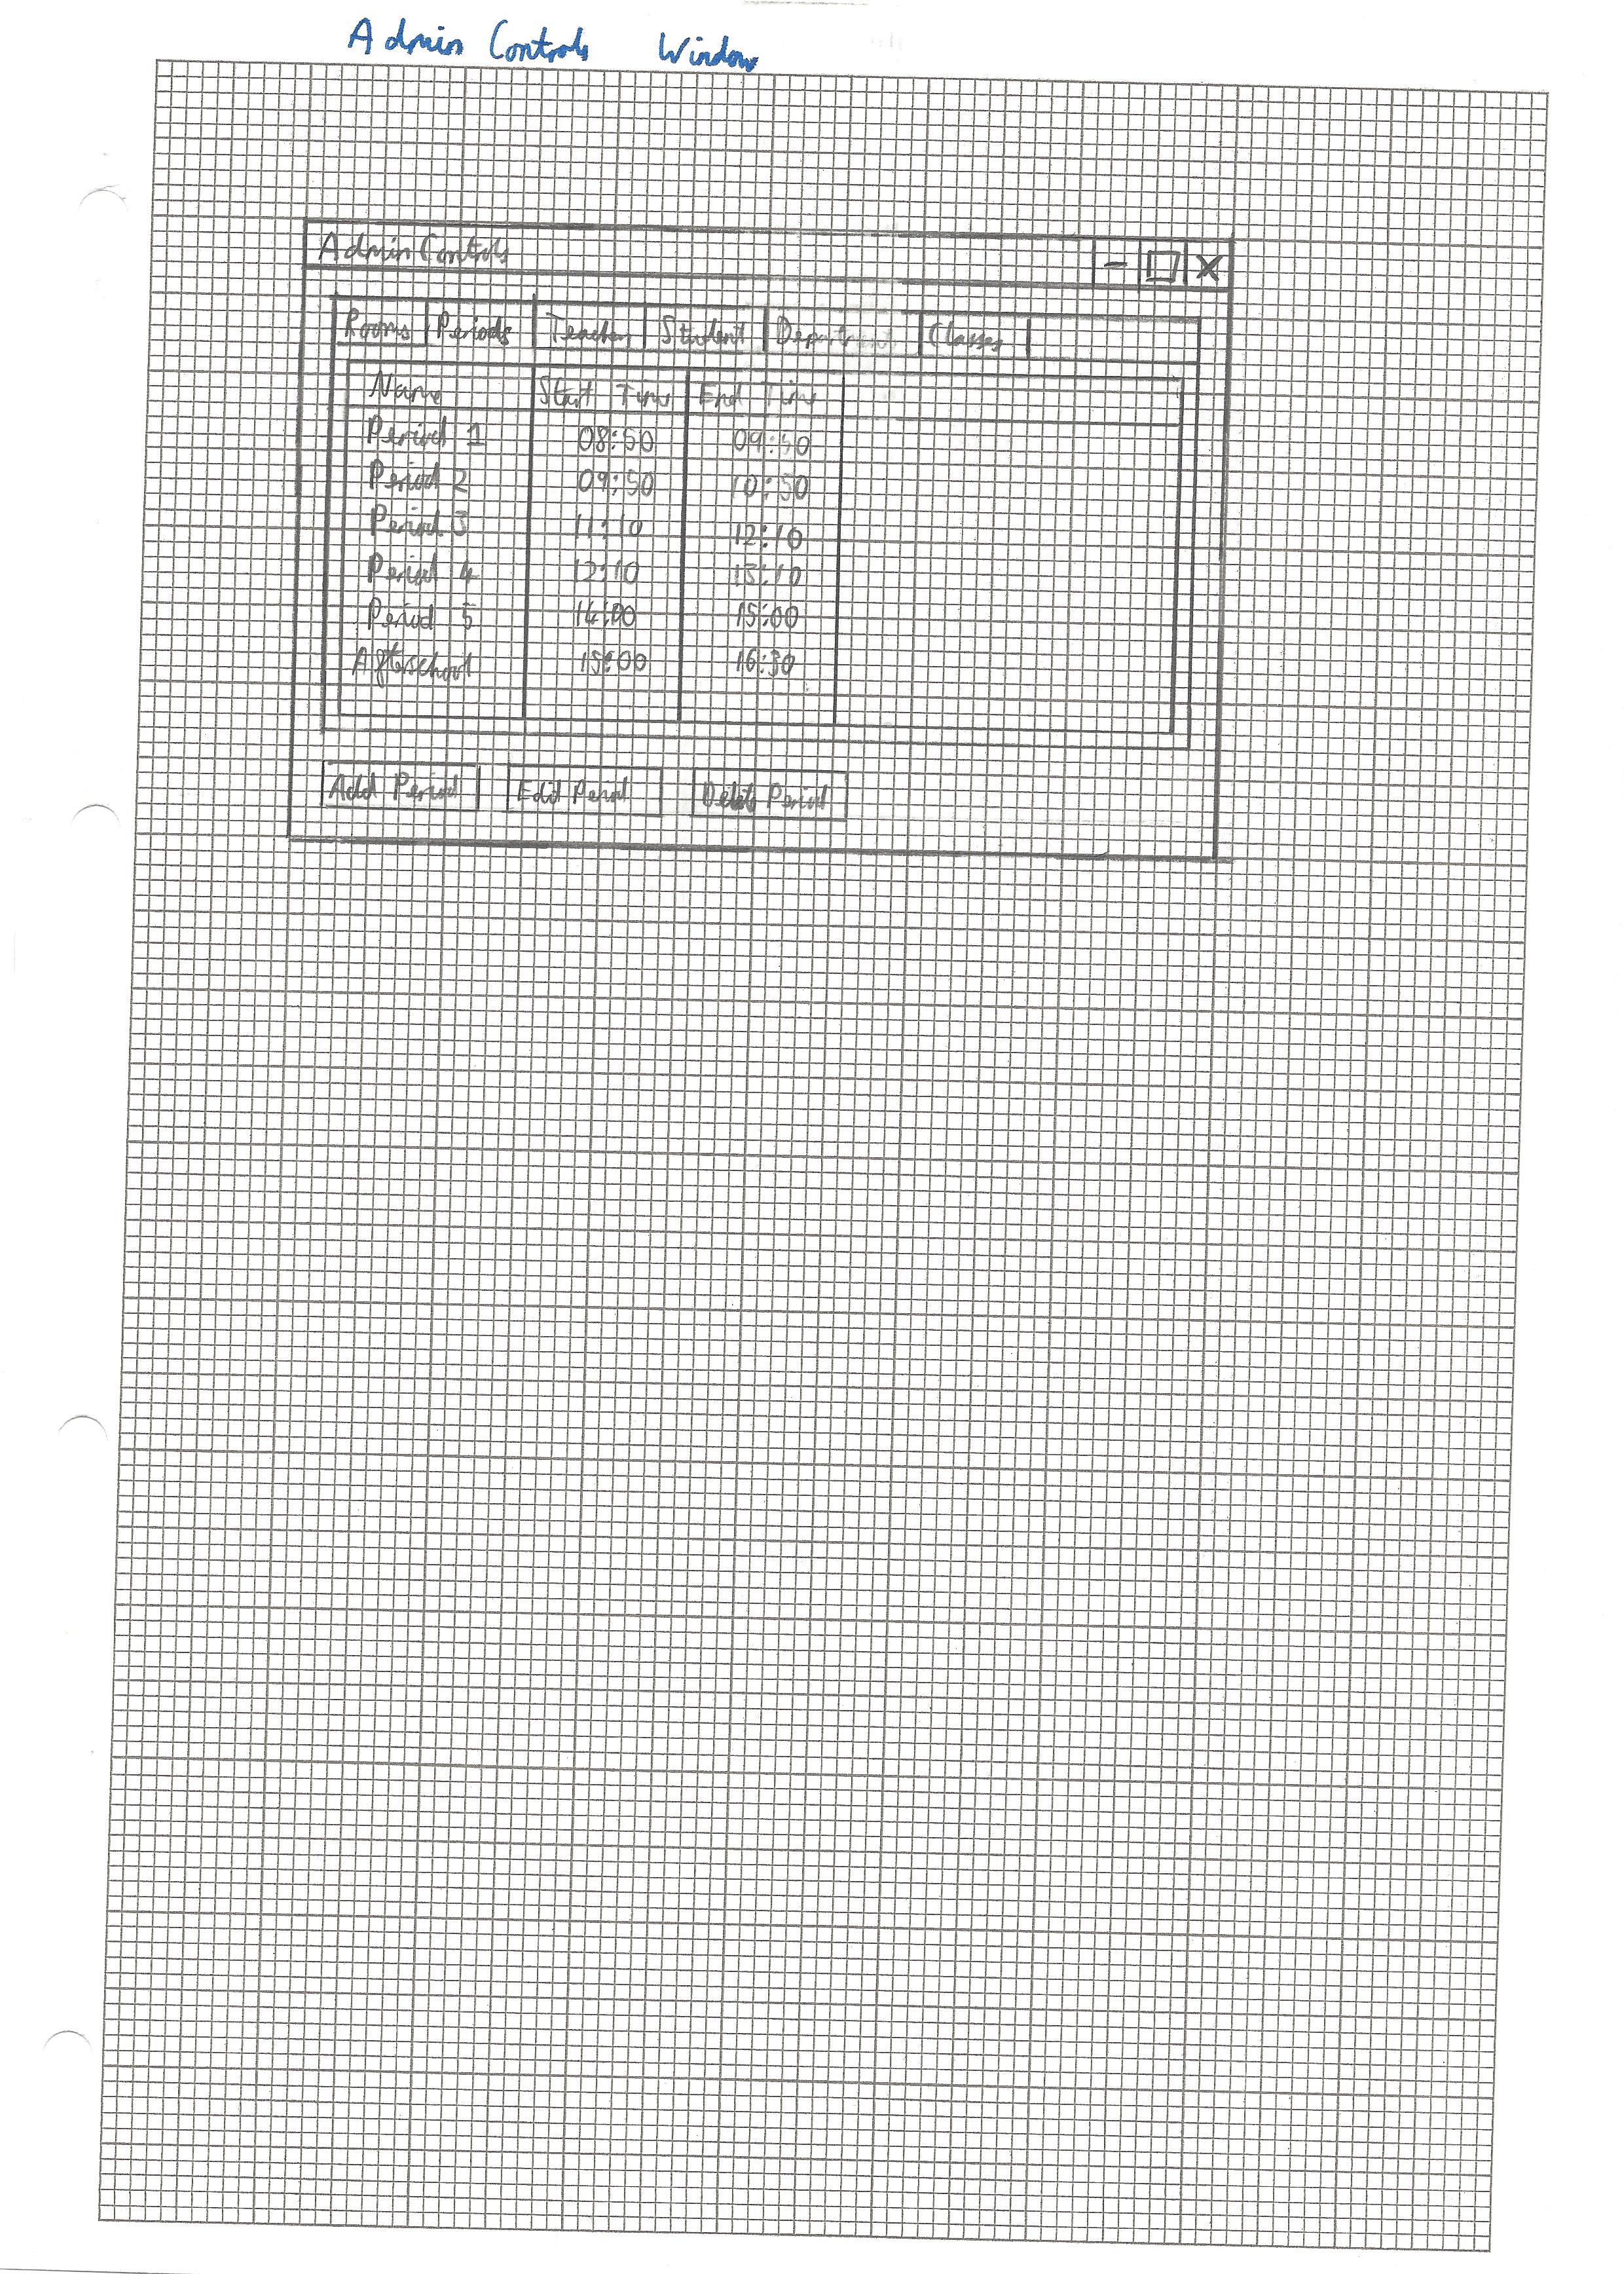 Admin Controls Window
Admin Controls - □ X
Rooms Periods Teacher Student Department Classes
Name Start Time End Time
Period 1 08:50 09:50
Period 2 09:50 10:50
Period 3 11:10 12:10
Period 4 12:10 13:10
Period 5 14:00 15:00
Afterschool 15:00 16:30
Add Period Edit Period Delete Period